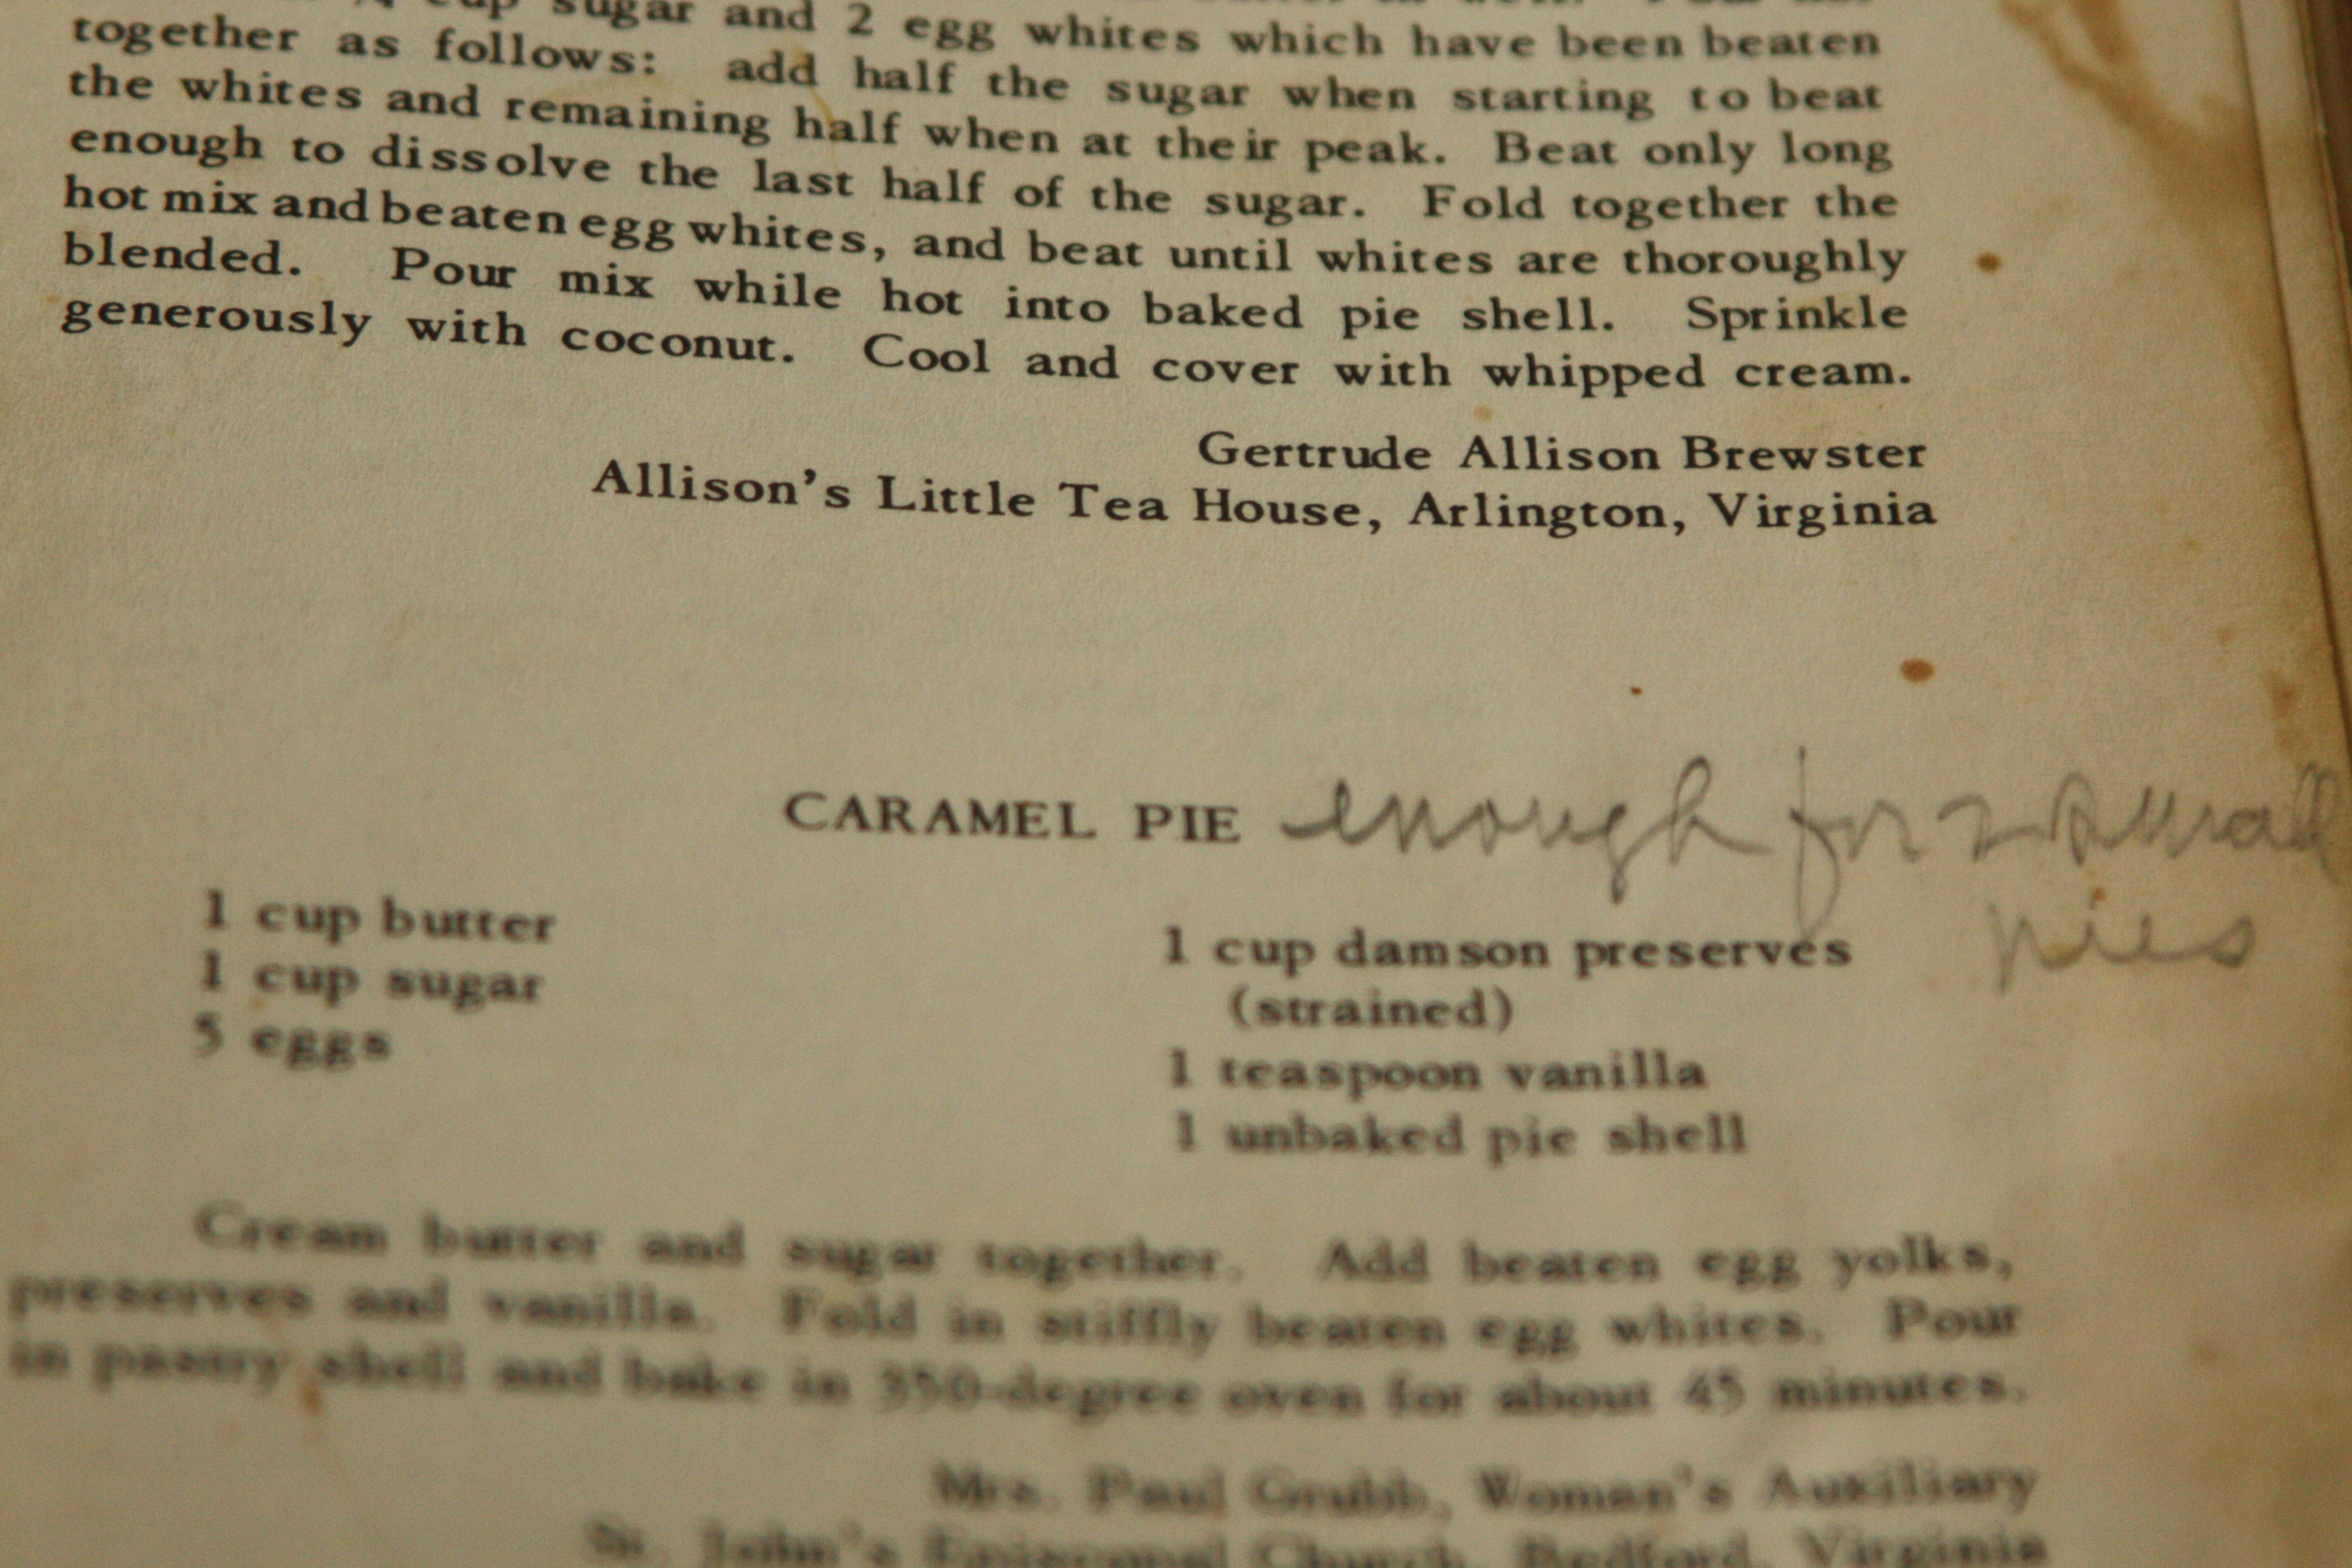 cup sugar and 2 egg whites which have been beaten
together as follows: add half the sugar when starting to beat
the whites and remaining half when at their peak. Beat only long
enough to dissolve the last half of the sugar. Fold together the
hot mix and beaten egg whites, and beat until whites are thoroughly
blended. Pour mix while hot into baked pie shell. Sprinkle
generously with coconut. Cool and cover with whipped cream.
Gertrude Allison Brewster
Allison's Little Tea House, Arlington, Virginia
CARAMEL PIE enough for 2 small
pies
1 cup butter
1 cup sugar
5 eggs
1 cup damson preserves
(strained)
1 teaspoon vanilla
1 unbaked pie shell
Cream butter and sugar together. Add beaten egg yolks,
preserves and vanilla. Fold in stiffly beaten egg whites. Pour
in pastry shell and bake in 350-degree oven for about 45 minutes.
Mrs. Paul Grubb, Woman's Auxiliary
St. John's Episcopal Church, Bedford, Virginia